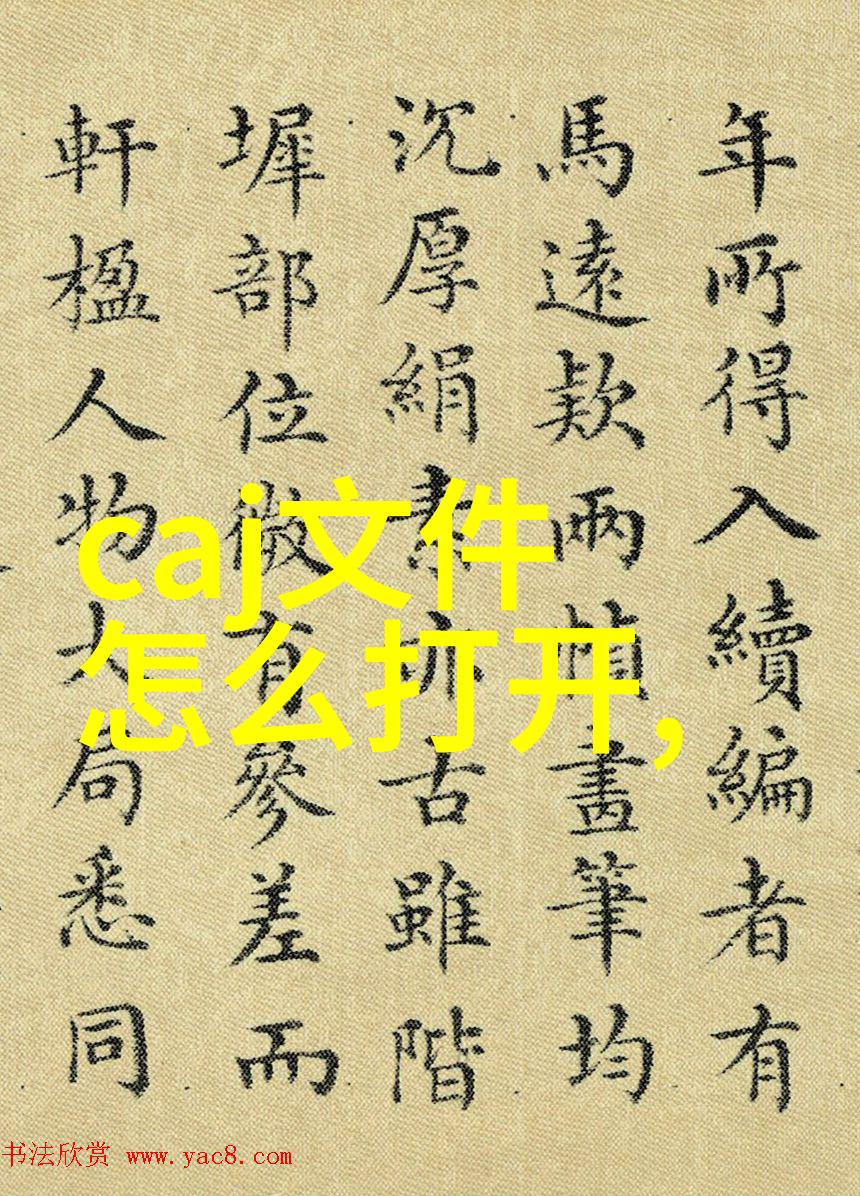 年所得入續編者有
馬遠欵兩幀畫筆均
沉厚絹素亦古雖階
墀部位微有參差而
軒楹人物大局悉同
caj文件
怎么打开,
书法欣赏 www.yac8.com